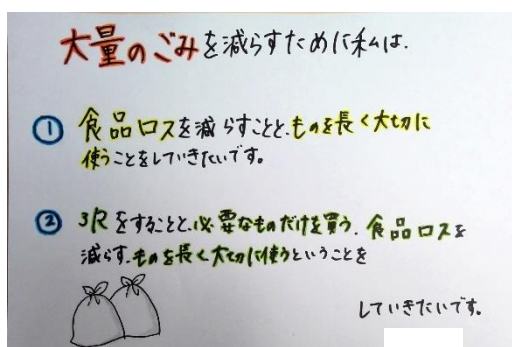 大量のごみを減らすために私は、
① 食品ロスを減らすことと、ものを長く大切に
使うことをしていきたいです。
② 3Rをすることと、必要なものだけを買う、食品ロスを
減らす、ものを長く大切に使うということを
していきたいです。